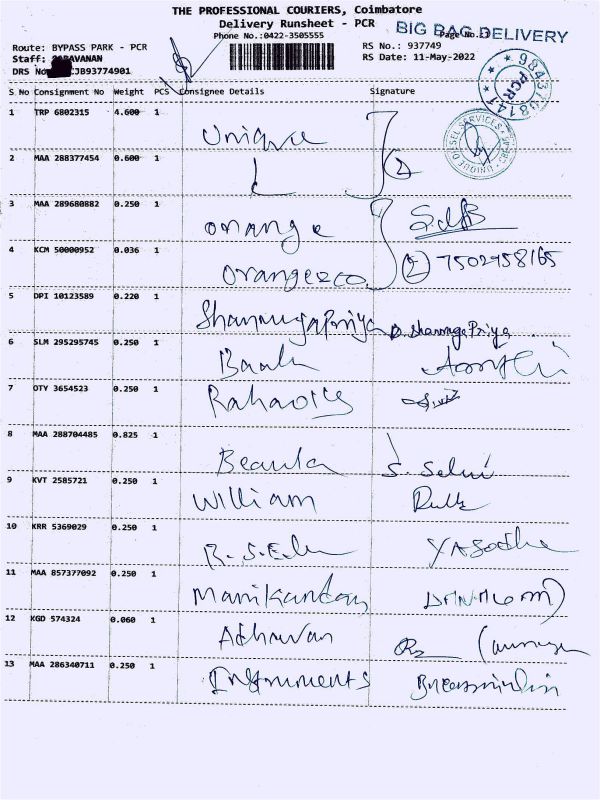 THE PROFESSIONAL COURIERS, Coimbatore
Delivery Runsheet - PCR
BIG BAG DELIVERY
Phone No.:0422-3505555
Route: BYPASS PARK - PCR
RS No.: 937749
RS Date: 11-May-2022
DRS No CJB93774901
9843798147
PCR
UNIQUE DIESEL SERVICES
S No Consignment No Weight PCS Consignee Details Signature
1 TRP 6802315 4.600 1
Unique
2 MAA 288377454 0.600 1
2
3 MAA 289680882 0.250 1
orange
4 KCM 50000952 0.036 1
2 7502958165
orangezco
5 DPI 10123589 0.220 1
ShanmugaPriya D. Shanmuga Priya
6 SLM 295295745 0.250 1
Bank
7 OTY 3654523 0.250 1
8 MAA 288704485 0.825 1
Beaula S. Selvi
9 KVT 2585721 0.250 1
William
10 KRR 5369029 0.250 1
Yasodha
11 MAA 857377092 0.250 1
Manikandan
12 KGD 574324 0.060 1
Adhavan
13 MAA 286340711 0.250 1
Instruments